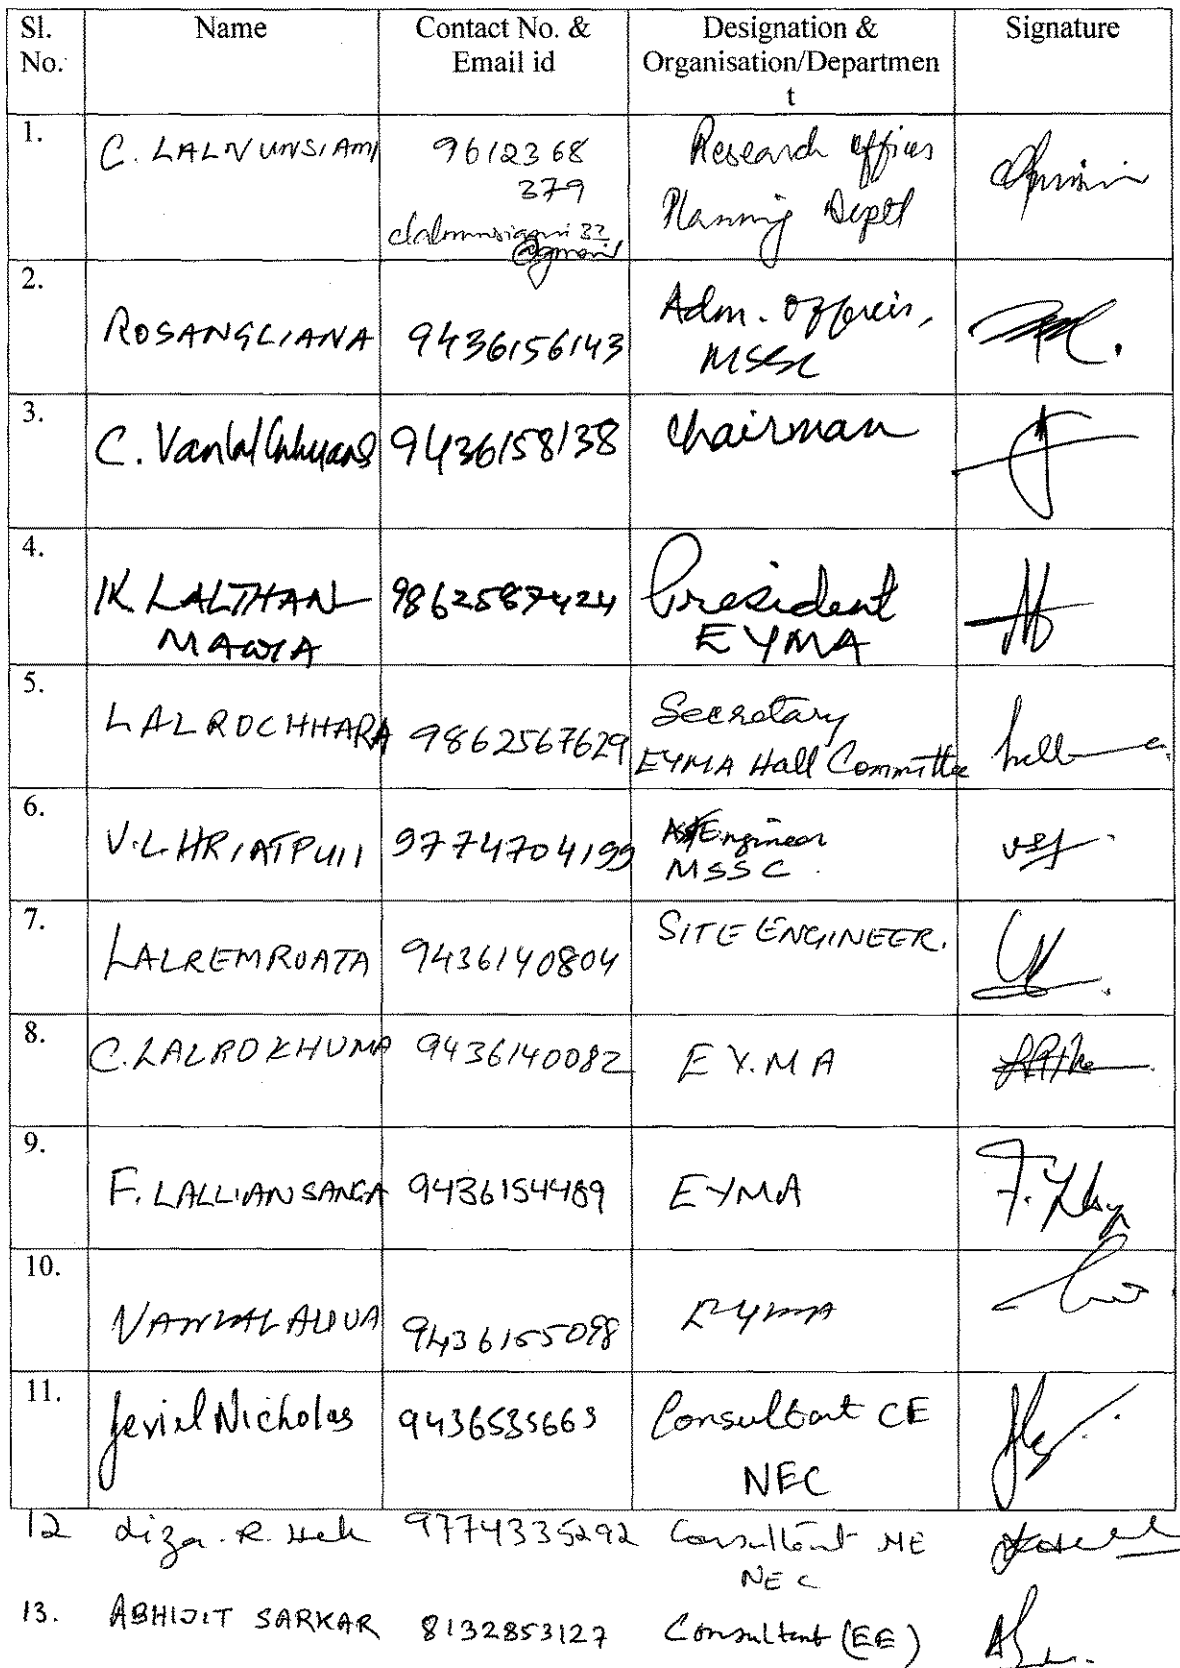 Sl. No. Name Contact No. & Email id Designation & Organisation/Department Signature
1. C. LALNUNSIAMI 9612368
379 Research Officer
Planning Deptt
2. ROSANGLIANA 9436156143 Adm. Officer,
MSSC
3. C. 9436158138 Chairman
4. K. LALTHAN
MAWIA 9862587424 President
EYMA
5. LALROCHHARA 9862567629 Secretary
EYMA Hall Committee
6. V.L. HRIATPUII 9774704199 Engineer
MSSC.
7. LALREMRUATA 9436140804 SITE ENGINEER.
8. C. LALROKHUMA 9436140082 E Y.M A
9. F. LALLIANSANGA 9436154489 EYMA
10. 9436155098 EYMA
11. Jeviel Nicholas 9436535663 Consultant CE
NEC
12 9774335292 Consultant ME
NEC
13. ABHIJIT SARKAR 8132853127 Consultant (EE)